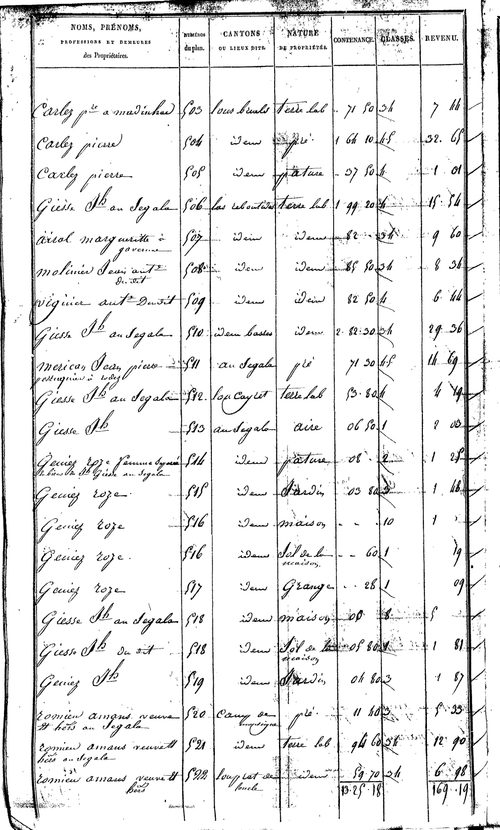 NOMS, PRÉNOMS,
PROFESSIONS ET DEMEURES
des Propriétaires.
NUMÉROS
du plan.
CANTONS
OU LIEUX DITS.
NATURE
DE PROPRIÉTÉ.
CONTENANCE.
CLASSES.
REVENU.
Carles pre a madinhac 503 terre lab 71 50 34 7 44
Carles pierre 504 idem pré 1 64 10 45 32 65
Carles pierre 505 idem pature 37 50 4 1 01
Giesse Jh au Segala 506 las reboutides terre lab 1 99 20 4 15 54
marguerite à 507 idem idem 82 34 9 60
molinier Jean ant 508 idem idem 85 50 34 8 34
du dit
viguier ant Du dit 509 idem idem 82 50 4 6 44
Giesse Jh au Segala 510 idem basses idem 2 82 30 34 29 36
Jean pierre 511 au Segala pré 71 30 45 14 69
à rodez
Giesse Jh au Segala 512 lou cayret terre lab 53 80 4 4 19
Giesse Jh 513 au Segala aire 06 50 1 2 03
Geniez roze femme 514 idem pature 08 2 1 25
de Jh Giesse au Segala
Geniez roze 515 idem Jardin 03 80 3 1 48
Geniez roze 516 idem maison - - 10 1
Geniez roze 516 idem Sol de la - - 60 1 19
maison
Geniez roze 517 idem Grange - - 28 1 09
Giesse Jh au Segala 518 idem maison 8 5
Giesse Jh du dit 518 idem Sol de la 05 80 1 1 81
maison
Geniez Jh 519 idem Jardin 04 80 3 1 87
romieu amans veuve 520 camp de pré 11 40 3 5 33
et hers au Segala
romieu amans veuve et 521 idem terre lab 94 60 34 12 90
hers au Segala
romieu amans veuve et 522 idem 59 70 34 6 98
hers
13 25 18 169 19